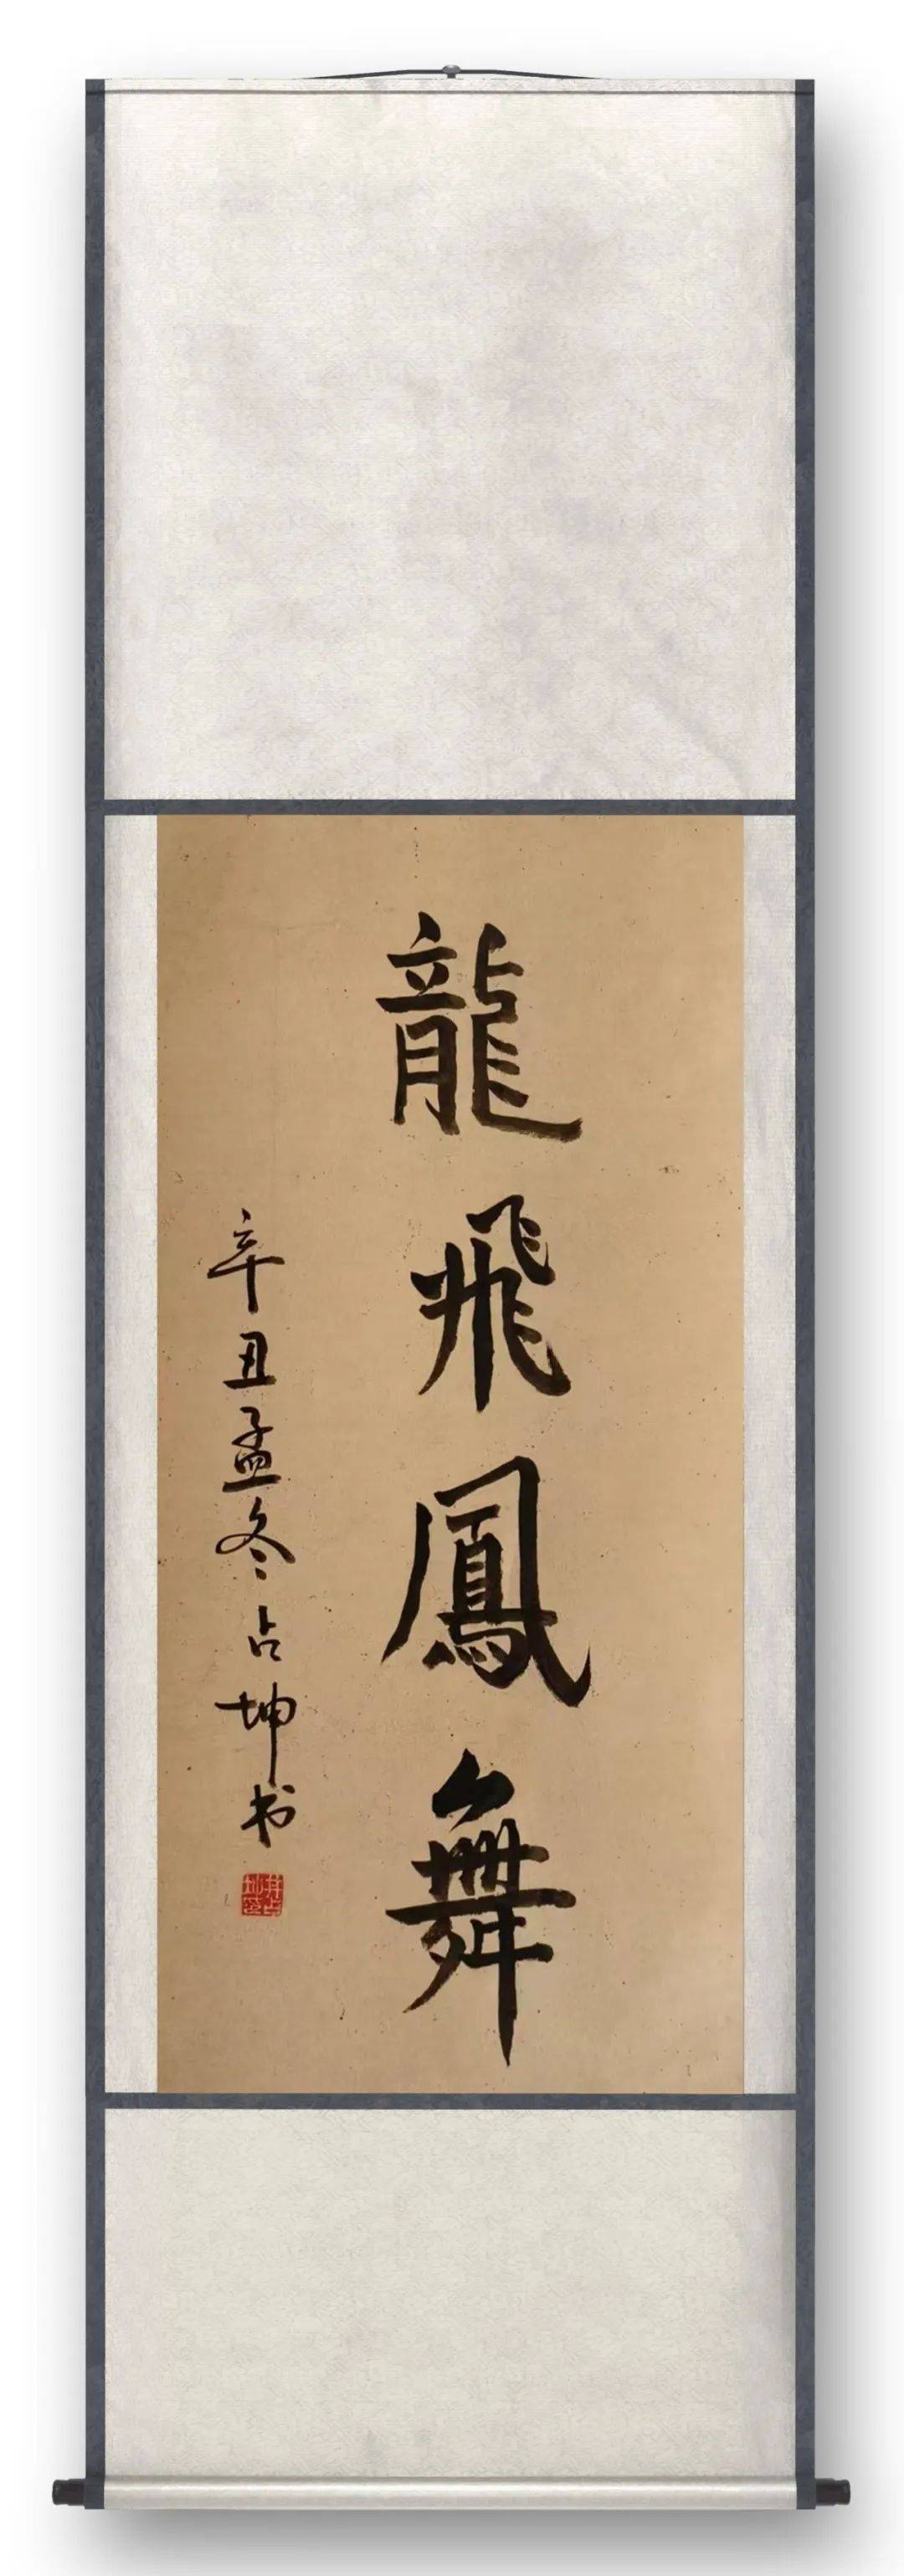 龍飛鳳舞
辛丑孟冬占坤书